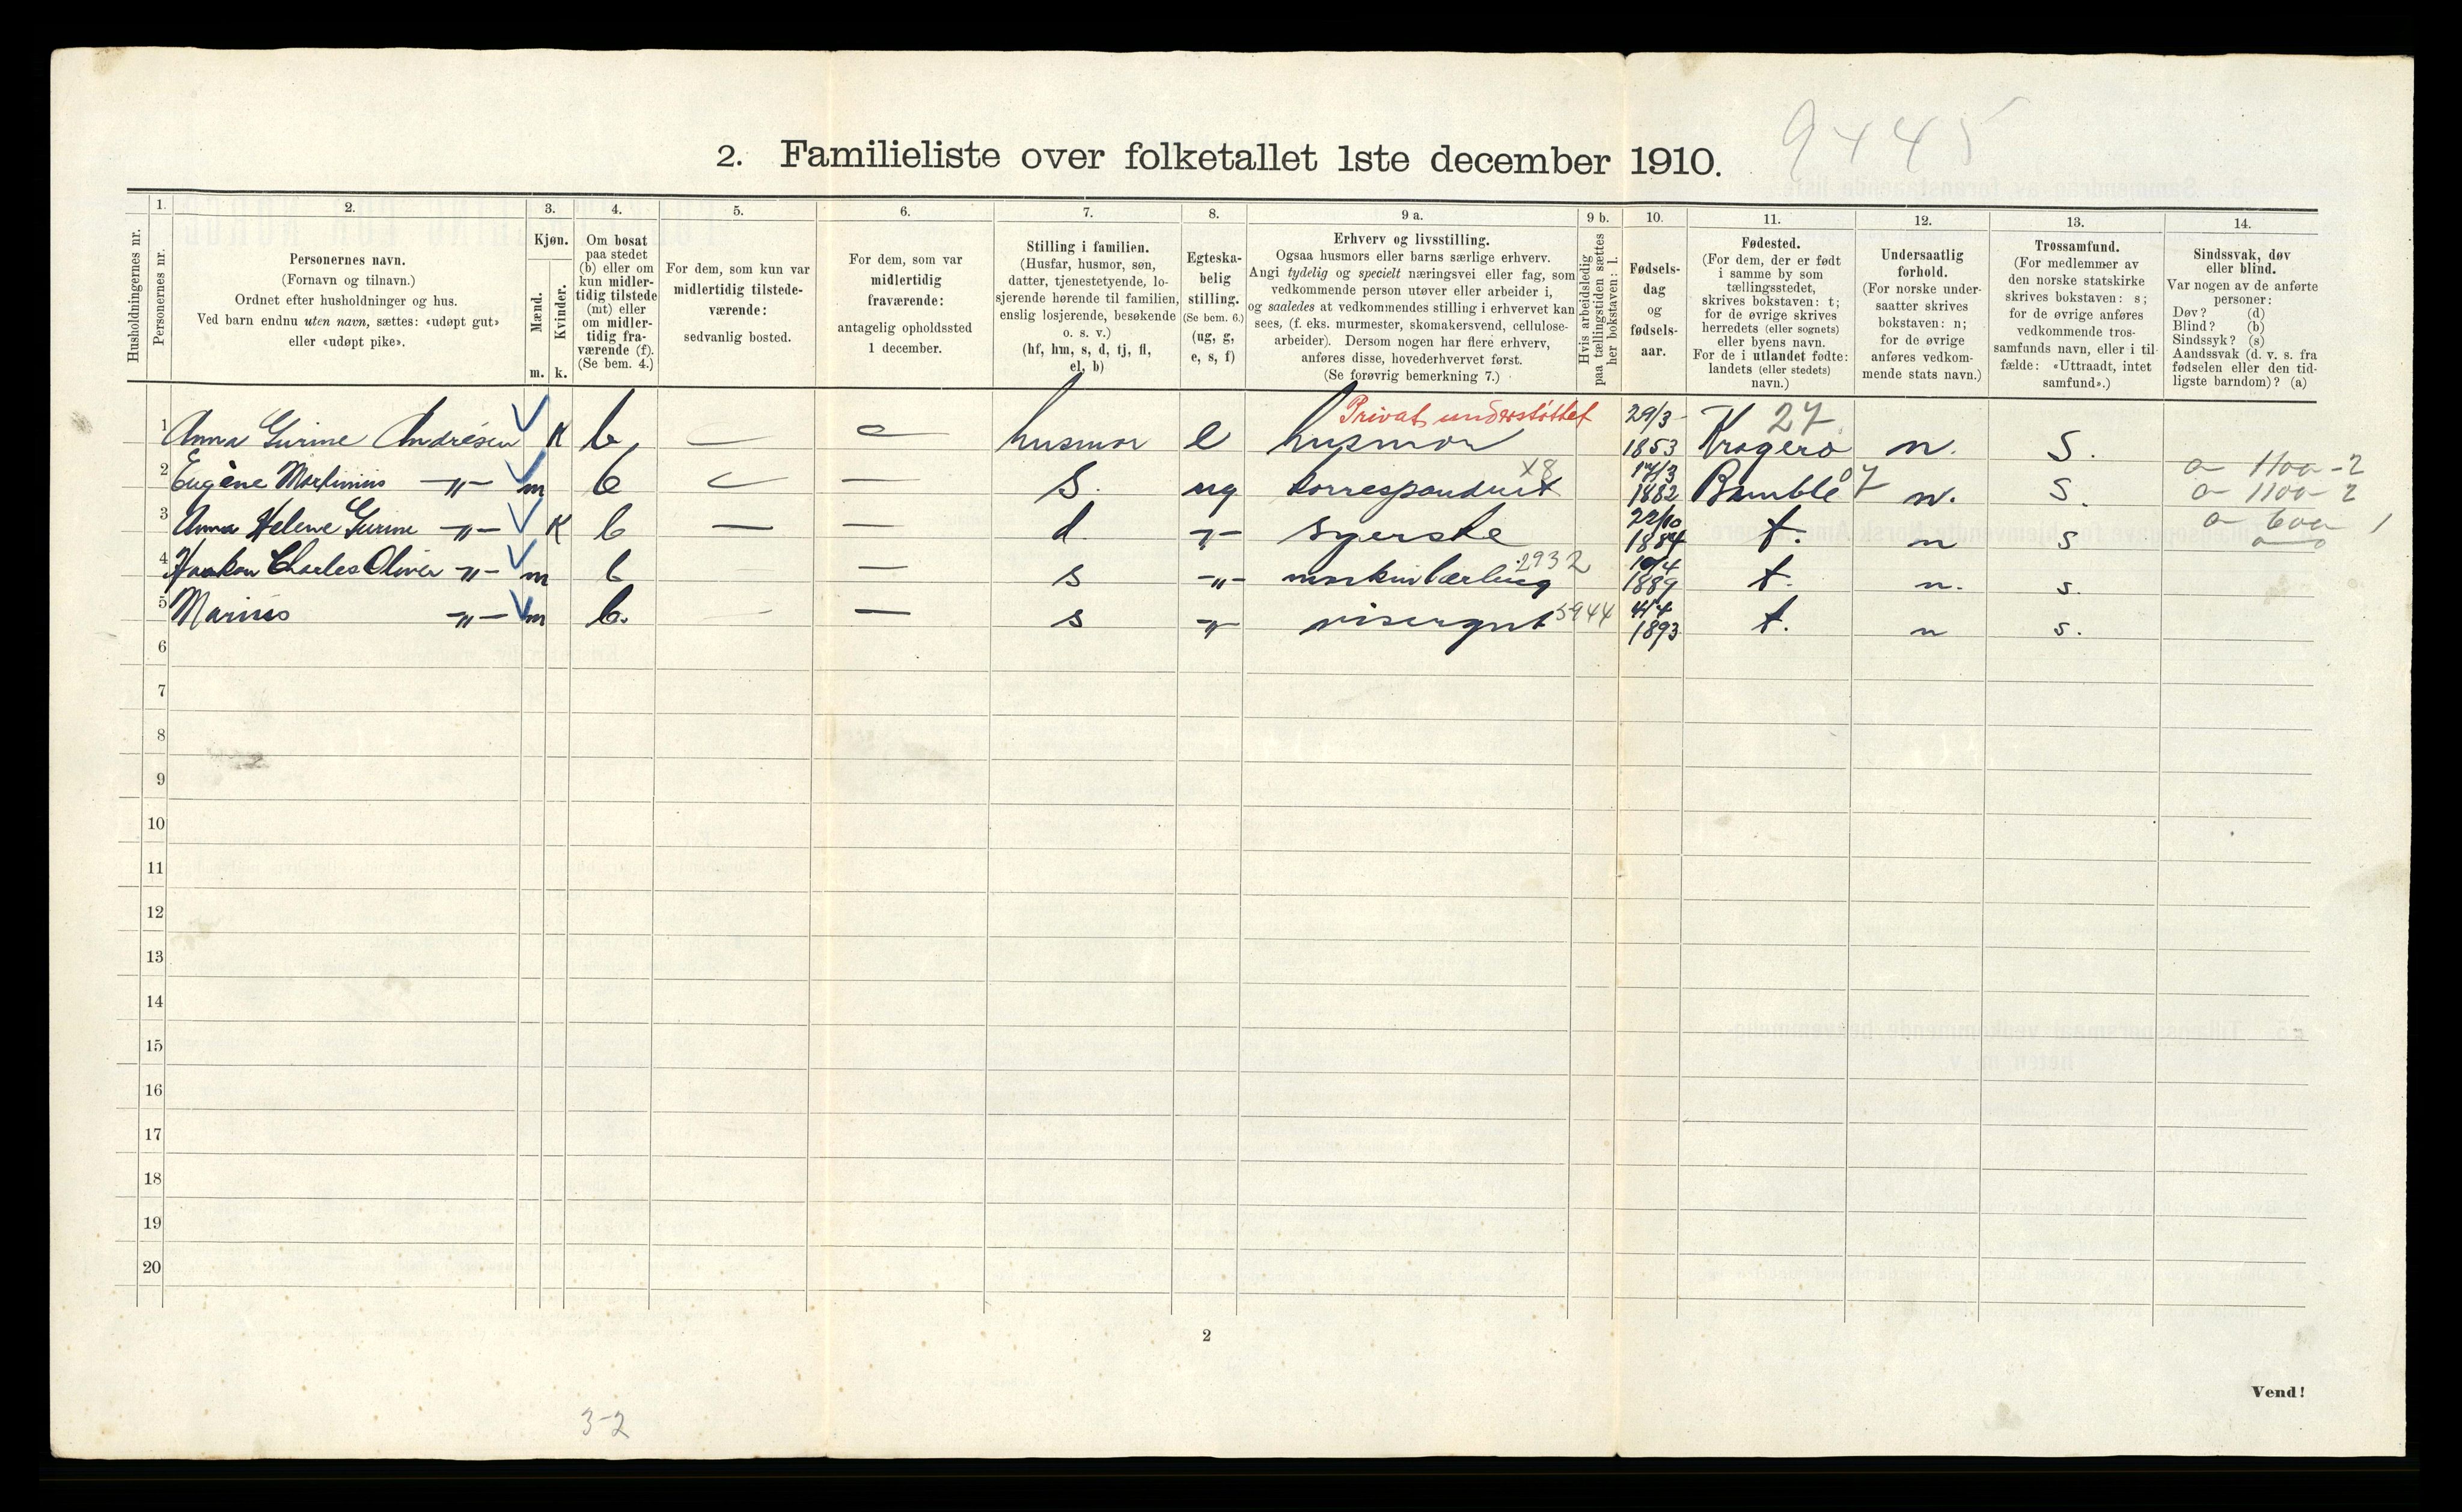 9445
2. Familieliste over folketallet 1ste december 1910.
1. 2. 3. 4. 5. 6. 7. 8. 9 a. 9 b. 10. 11. 12. 13. 14.
Husholdningernes nr.
Personernes nr.
Personernes navn.
(Fornavn og tilnavn.)
Ordnet efter husholdninger og hus.
Ved barn endnu uten navn, sættes: «udøpt gut»
eller «udøpt pike».
Kjøn.
Mænd.
Kvinder.
m. k.
Om bosat
paa stedet
(b) eller om
kun midler-
tidig tilstede
(mt) eller
om midler-
tidig fra-
værende (f).
(Se bem. 4.)
For dem, som kun var
midlertidig tilstede-
værende:
sedvanlig bosted.
For dem, som var
midlertidig
fraværende:
antagelig opholdssted
1 december.
Stilling i familien.
(Husfar, husmor, søn,
datter, tjenestetyende, lo-
sjerende hørende til familien,
enslig losjerende, besøkende
o. s. v.)
(hf, hm, s, d, tj, fl,
el, b)
Egteska-
belig
stilling.
(Se bem. 6.)
(ug, g,
e, s, f)
Erhverv og livsstilling.
Ogsaa husmors eller barns særlige erhverv.
Angi tydelig og specielt næringsvei eller fag, som
vedkommende person utøver eller arbeider i,
og saaledes at vedkommendes stilling i erhvervet kan
sees, (f. eks. murmester, skomakersvend, cellulose-
arbeider). Dersom nogen har flere erhverv,
anføres disse, hovederhvervet først.
(Se forøvrig bemerkning 7.)
Hvis arbeidsledig
paa tællingstiden sættes
her bokstaven: l.
Fødsels-
dag
og
fødsels-
aar.
Fødested.
(For dem, der er født
i samme by som
tællingsstedet,
skrives bokstaven: t;
for de øvrige skrives
herredets (eller sognets)
eller byens navn.
For de i utlandet fødte:
landets (eller stedets)
navn.)
Undersaatlig
forhold.
(For norske under-
saatter skrives
bokstaven: n;
for de øvrige
anføres vedkom-
mende stats navn.)
Trossamfund.
(For medlemmer av
den norske statskirke
skrives bokstaven: s;
for de øvrige anføres
vedkommende tros-
samfunds navn, eller i til-
fælde: «Uttraadt, intet
samfund».)
Sindssvak, døv
eller blind.
Var nogen av de anførte
personer:
Døv? (d)
Blind? (b)
Sindssyk? (s)
Aandssvak (d. v. s. fra
fødselen eller den tid-
ligste barndom)? (a)
Privat understøttet 29/3 27
1 Anna Gurine Andresen K b — — husmor e husmor 1853 Kragerø n. S.
2 Eugène Martinius -„- m b — — S. ug korrespondent x8 17/3 1882 Bamble 07 n. S.
3 Anna Helene Gurine -„- K b — — d. -„- syerske 22/10 1884 t. n s
4 Haakon Charles Oliver -„- m b — s -„- maskinlærling 2932 10/4 1889 t. n. s.
5 Marius -„- m b. — — s -„- visergut 5944 4/4 1893 t. n s.
1100-2
1100-2
600 1
6
7
8
9
10
11
12
13
14
15
16
17
18
19
20
2
Vend!
3-2